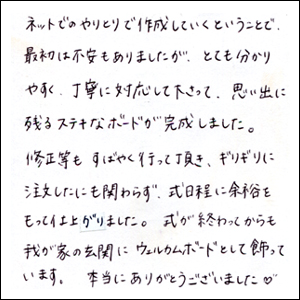 ネットでのやりとりで作成していくということで、
最初は不安もありましたが、とても分かり
やすく、丁寧に対応して下さって、思い出に
残るステキなボードが完成しました。
修正等も すばやく行って頂き、ギリギリに
注文したにも関わらず、式日程に余裕を
もって仕上がりました。 式が終わってからも
我が家の玄関に ウェルカムボードとして飾って
います。 本当にありがとうございました♡